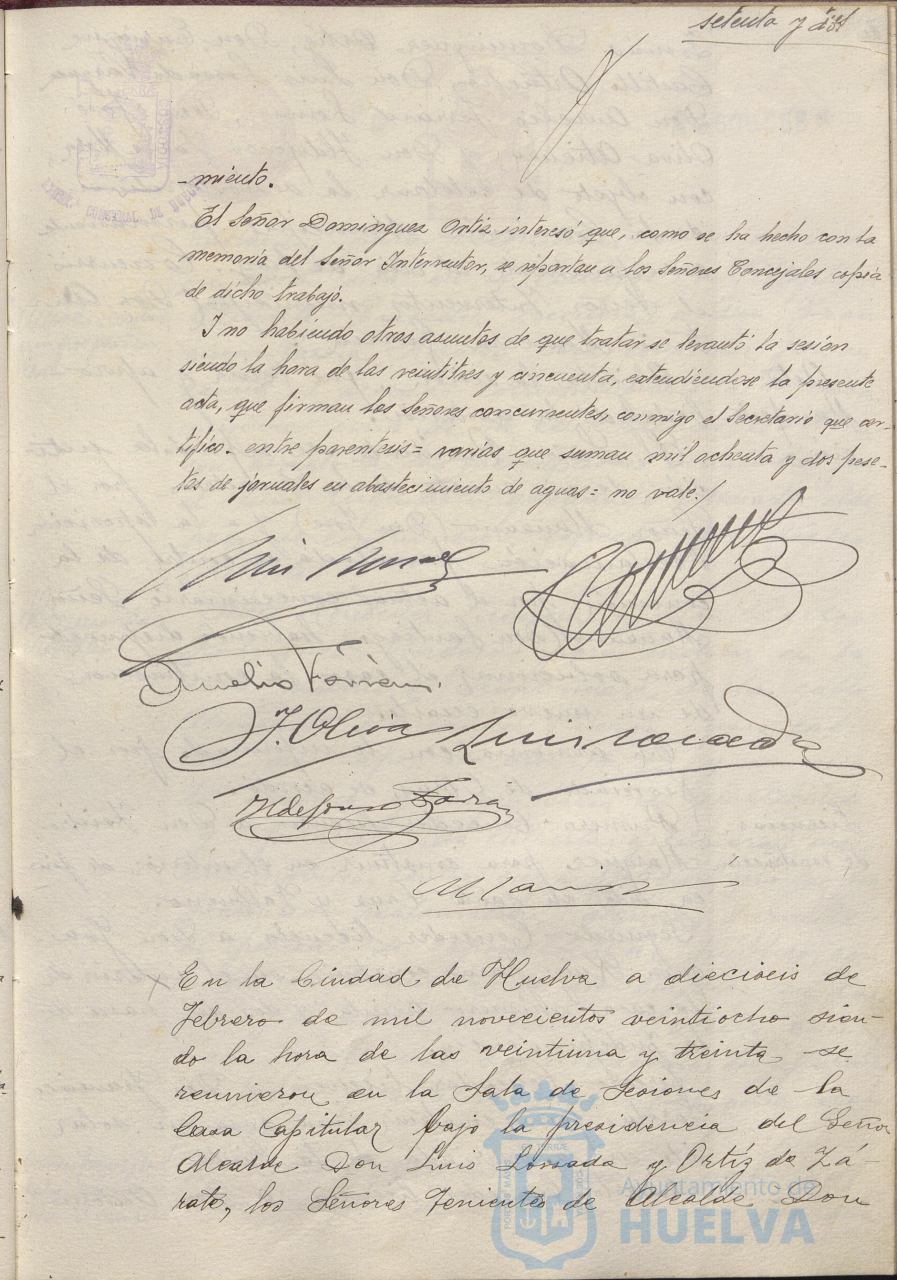 setenta y dos
-miento.
El Señor Dominguez Ortiz interesó que, como se ha hecho con la
memoria del Señor Interventor, se repartan a los Señores Concejales copia
de dicho trabajo.
I no habiendo otros asuntos de que tratar se levantó la sesion
siendo la hora de las veintitres y cincuenta, extendiendose la presente
acta, que firman los Señores concurrentes, conmigo el Secretario que cer-
tifico. entre parentesis = varias que suman mil ochenta y dos pese-
tas de jornales en abastecimiento de aguas = no vale./
J. Oliva
Ildefonso
En la Ciudad de Huelva a dieciseis de
Febrero de mil novecientos veintiocho sien-
do la hora de las veintiuna y treinta se
reunieron en la Sala de Sesiones de la
Casa Capitular bajo la presidencia del Señor
Alcalde Don Luis Lossada y Ortíz de Zá-
rate, los Señores Tenientes de Alcalde Don
Ayuntamiento de
HUELVA